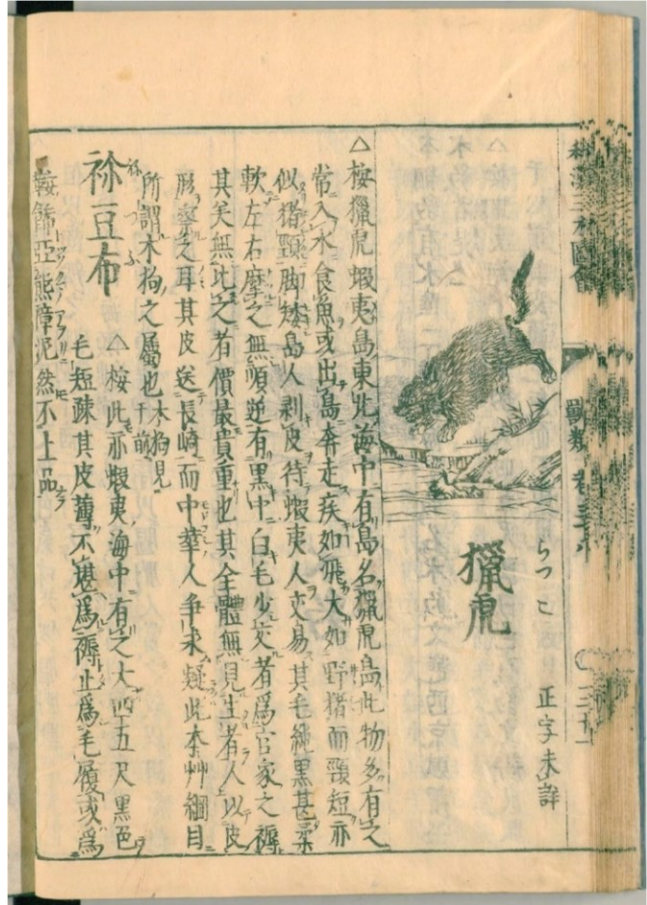 獵虎
らつこ
正字未詳
△桉獵虎蝦夷島東北海中有島名獵虎島此物多有之
常入水食魚或出島奔走疾如飛大如野猪而頸短亦
似猪頸脚矮島人剥皮待蝦夷人交易其毛純黒甚柔
軟左右摩之無順逆有黒中白毛少交者爲官家之褥
其美無比之者價最貴重也其全體無見生者人以皮
形察之耳其皮送長崎而中華人争求疑此本艸綱目
所謂木狗之屬也木狗見于前
袮豆布
△桉此亦蝦夷海中有之大四五尺黒色
毛短疎其皮薄不堪爲褥止爲毛履或爲
鞍飾亞熊障泥然不上品